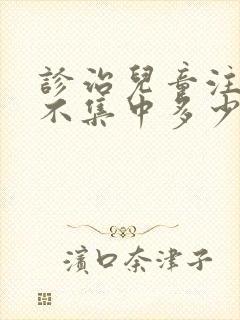 診治兒童注
不集中多少
濱口奈津子